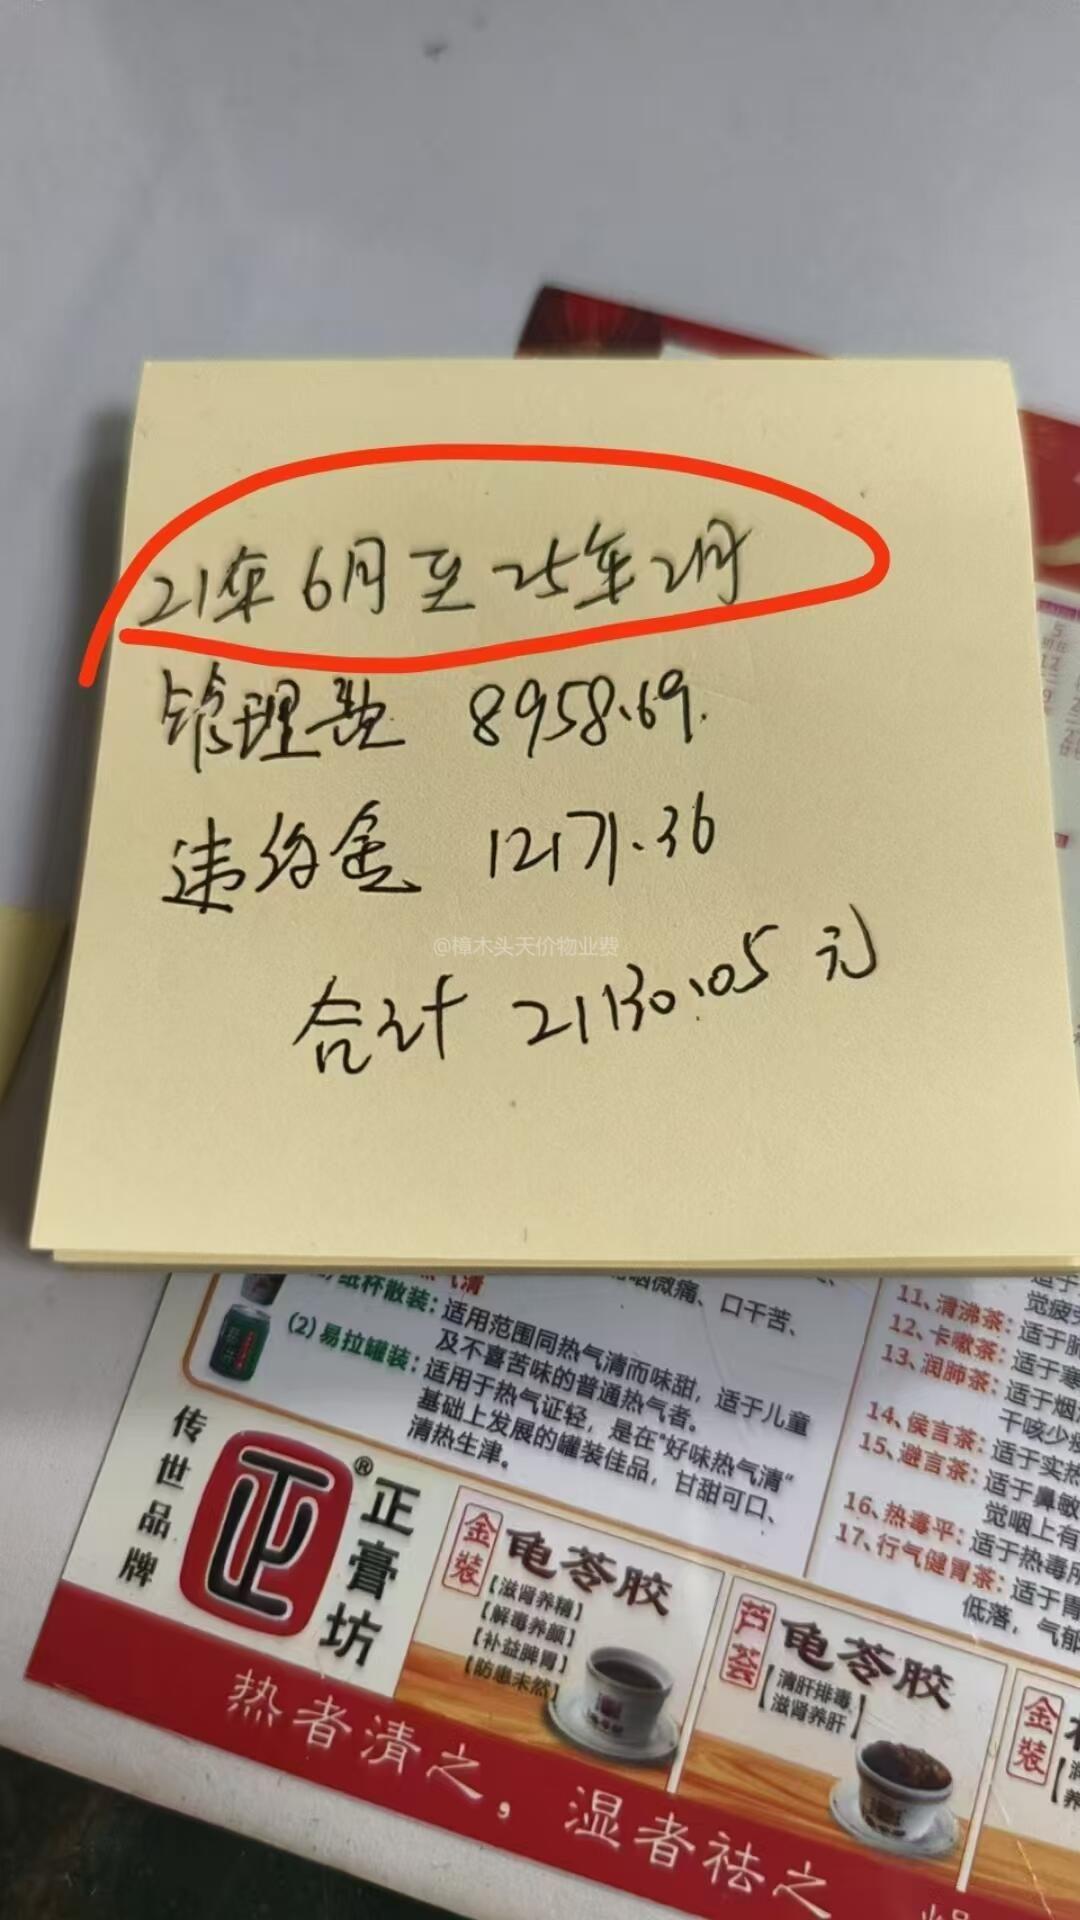 21年6月至25年2月
管理费 8958.69.
违约金 12171.36
@樟木头天价物业费
合计 21130.05元
纸杯散装：
(2)易拉罐装：
适用范围同热气清而味甜，适于儿童
及不喜苦味的普通热气者。
适用于热气证轻，是在“好味热气清”
基础上发展的罐装佳品，甘甜可口、
清热生津。
咽微痛、口干苦、
11、清沸茶：
12、卡嗽茶：
13、润肺茶：
14、侯言茶：
15、避言茶：
16、热毒平：适于热毒
17、行气健胃茶：适于胃
觉疲
适于寒
适于烟
干咳少
适于实热
适于鼻敏
觉咽上有
低落，气郁
传世品牌
正膏坊
®
金装
龟苓胶
【滋肾养精】
【解毒养颜】
【补益脾胃】
【防患未然】
芦荟
龟苓胶
【清肝排毒】
【滋肾养肝】
金装
热者清之，湿者祛之